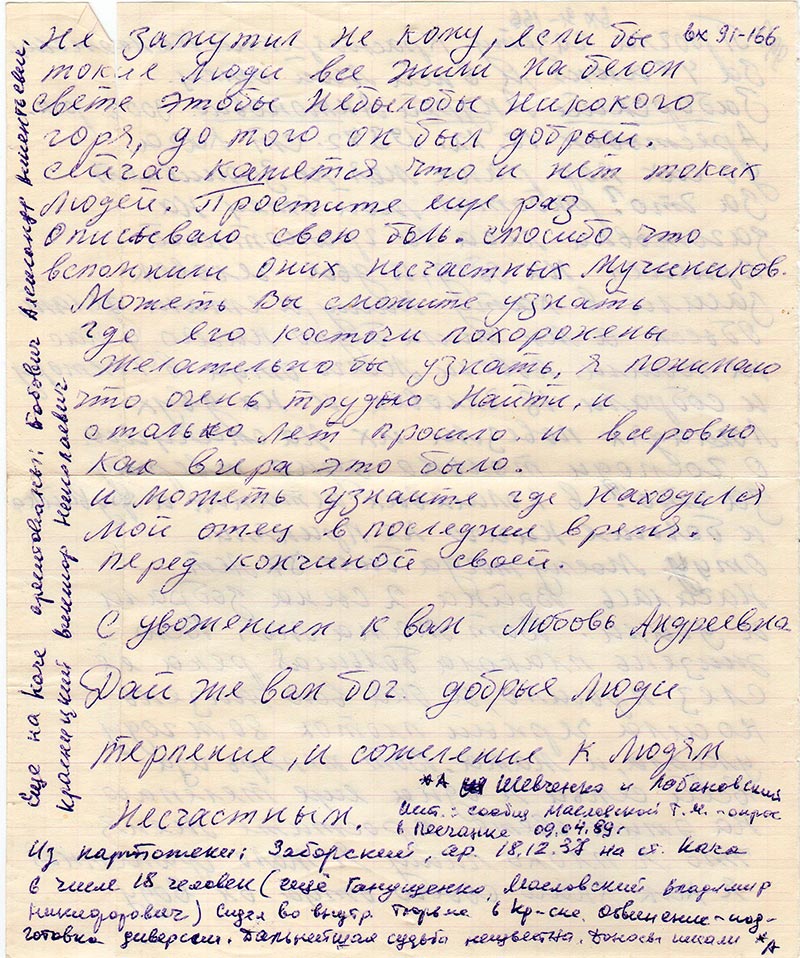 вх 91-166
не замутил не кому, если бы
такие люди все жили на белом
свете этобы небылобы никокого
горя, до того он был добрый.
сейчас кажется что и нет таких
людей. Простите еще раз
описываю свою боль. спосибо что
вспомнили оних несчастных мучиников.
Можеть вы сможите узнать
где его косточи похоронены
желательно бы узнать. я понимаю
что очень трудно найти, и
столько лет прошло. и всеровно
как вчера это было.
и можеть узнаите где находился
мой отец в последнее время.
перед кончиной своей.
С уважением к вам Любовь Андреевна
Дай же вам бог. добрые люди
терпение, и сожеление к людям
несчастным.
*А Шевченко и Лобановский
ист.: сообщ Масловской Т. М. - опрос
в Песчанке 09.04.89г
Из картотеки: Заборский, ар. 18.12.37 на ст. Кача
в числе 18 человек (ещё Ганущенко, Масловский Владимир
Никифорович) Сидел во внутр. тюрьме в Кр-ске. Обвинение - под-
готовка диверсии. Дальнейшая судьба неизвестна. Доносы писали *А
Еще на Каче арестованы: Бобович Александр Викентьевич,
Красицкий Виктор Николаевич